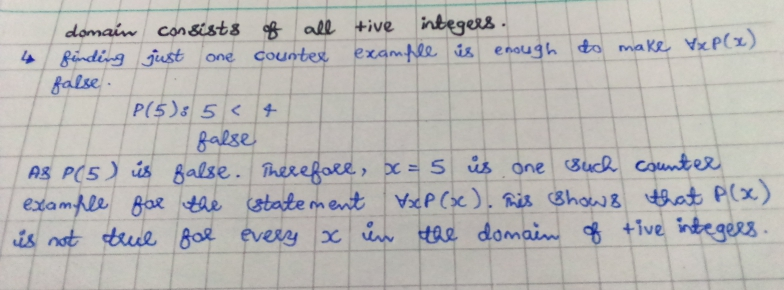 domain consists of all +ive integers.
↳ finding just one counter example is enough to make ∀xP(x)
false.
P(5): 5 < 4
false
As P(5) is false. Therefore, x = 5 is one such counter
example for the statement ∀xP(x). This shows that P(x)
is not true for every x in the domain of +ive integers.